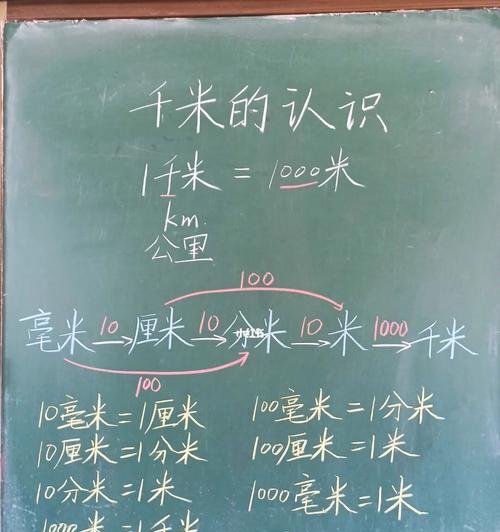 千米的认识
1千米 = 1000米
km
公里
100
毫米 10→ 厘米 10→ 分米 10→ 米 1000→ 千米
小红书
100
10毫米=1厘米 100毫米=1分米
10厘米=1分米 100厘米=1米
10分米=1米 1000毫米=1米
1000米=1千米